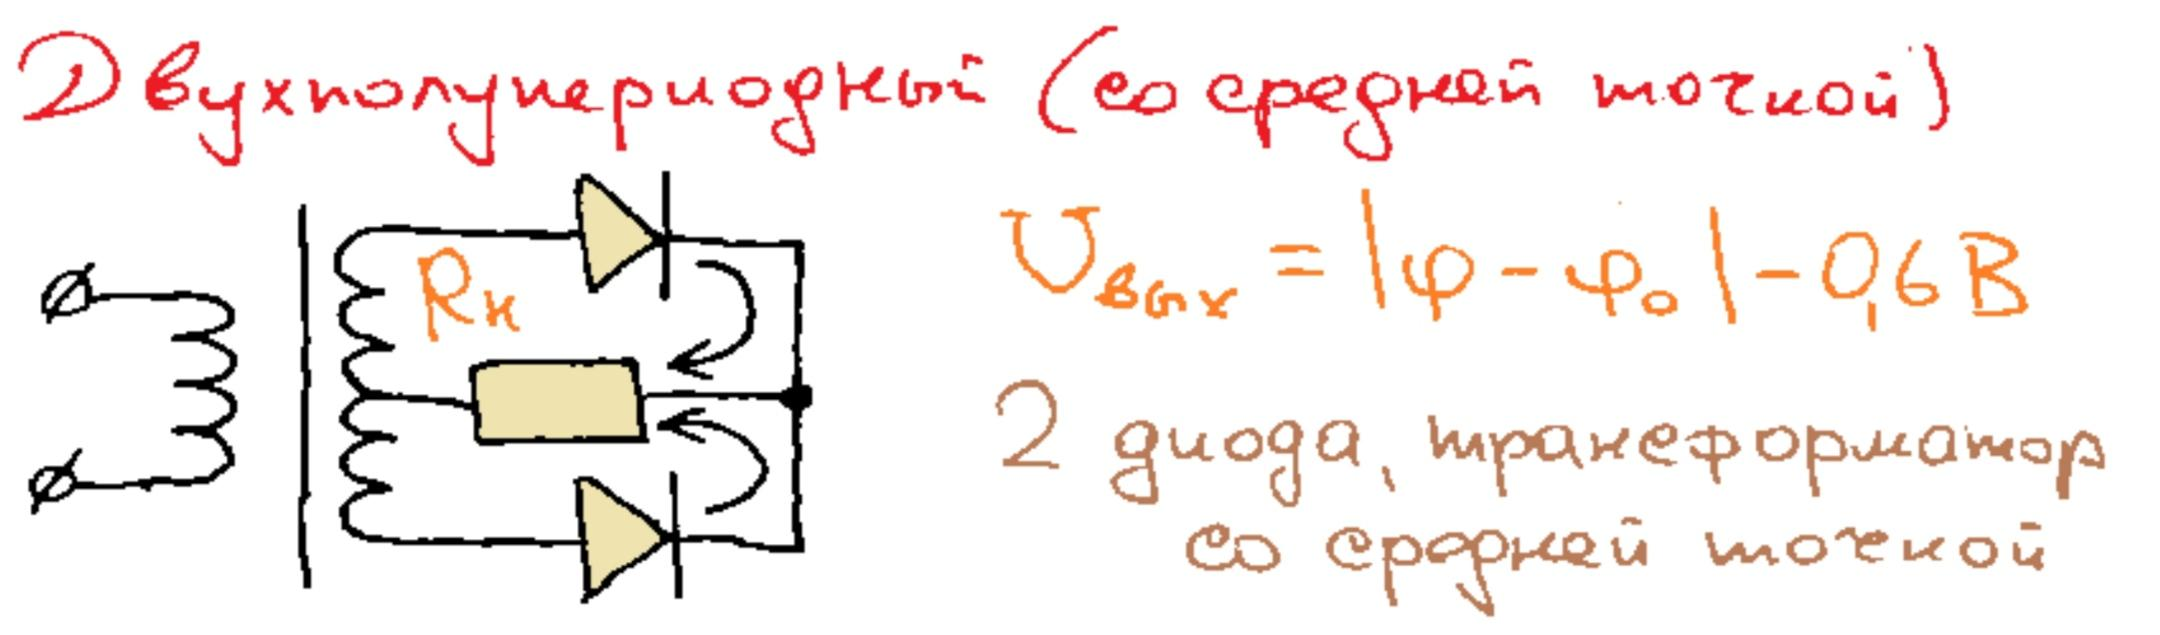 Двухполупериодный (со средней точкой)
Rн
Uвых = |φ - φ₀| - 0,6 В
2 диода, трансформатор
со средней точкой